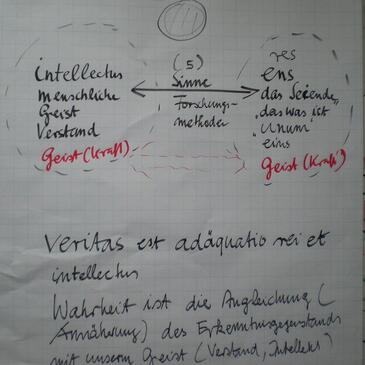 intellectus
menschliche
Geist
Verstand
Geist (Kraft)
(5)
Sinne
Forschungs-
methoden
res
ens
das Seiende
"das was ist"
"Unum"
eins
Geist (Kraft)
Veritas est adäquatio rei et
intellectus
Wahrheit ist die Angleichung (
Annäherung) des Erkenntnisgegenstands
mit unserm Geist (Verstand, Intellekt)